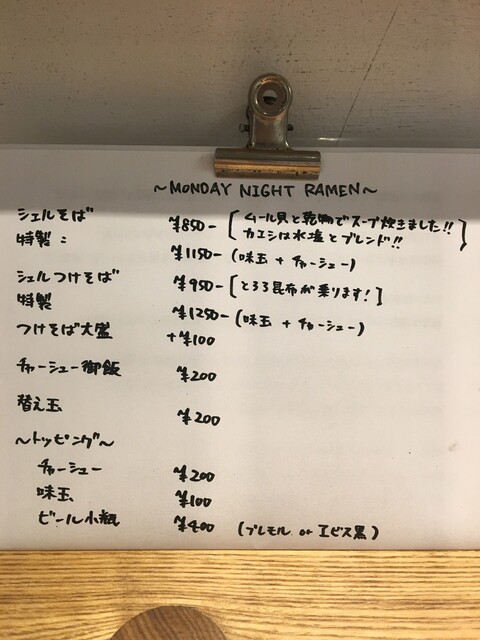 ~MONDAY NIGHT RAMEN~
シェルそば ¥850- [ムール貝と乾物でスープ炊きました!!
カエシは水塩とブレンド!!]
特製: ¥1150- (味玉 + チャーシュー)
シェルつけそば ¥950- [とろろ昆布が乗ります!]
特製 ¥1250- (味玉 + チャーシュー)
つけそば大盛 +¥100
チャーシュー御飯 ¥200
替え玉 ¥200
~トッピング~
チャーシュー ¥200
味玉 ¥100
ビール小瓶 ¥400 (プレモル or エビス黒)